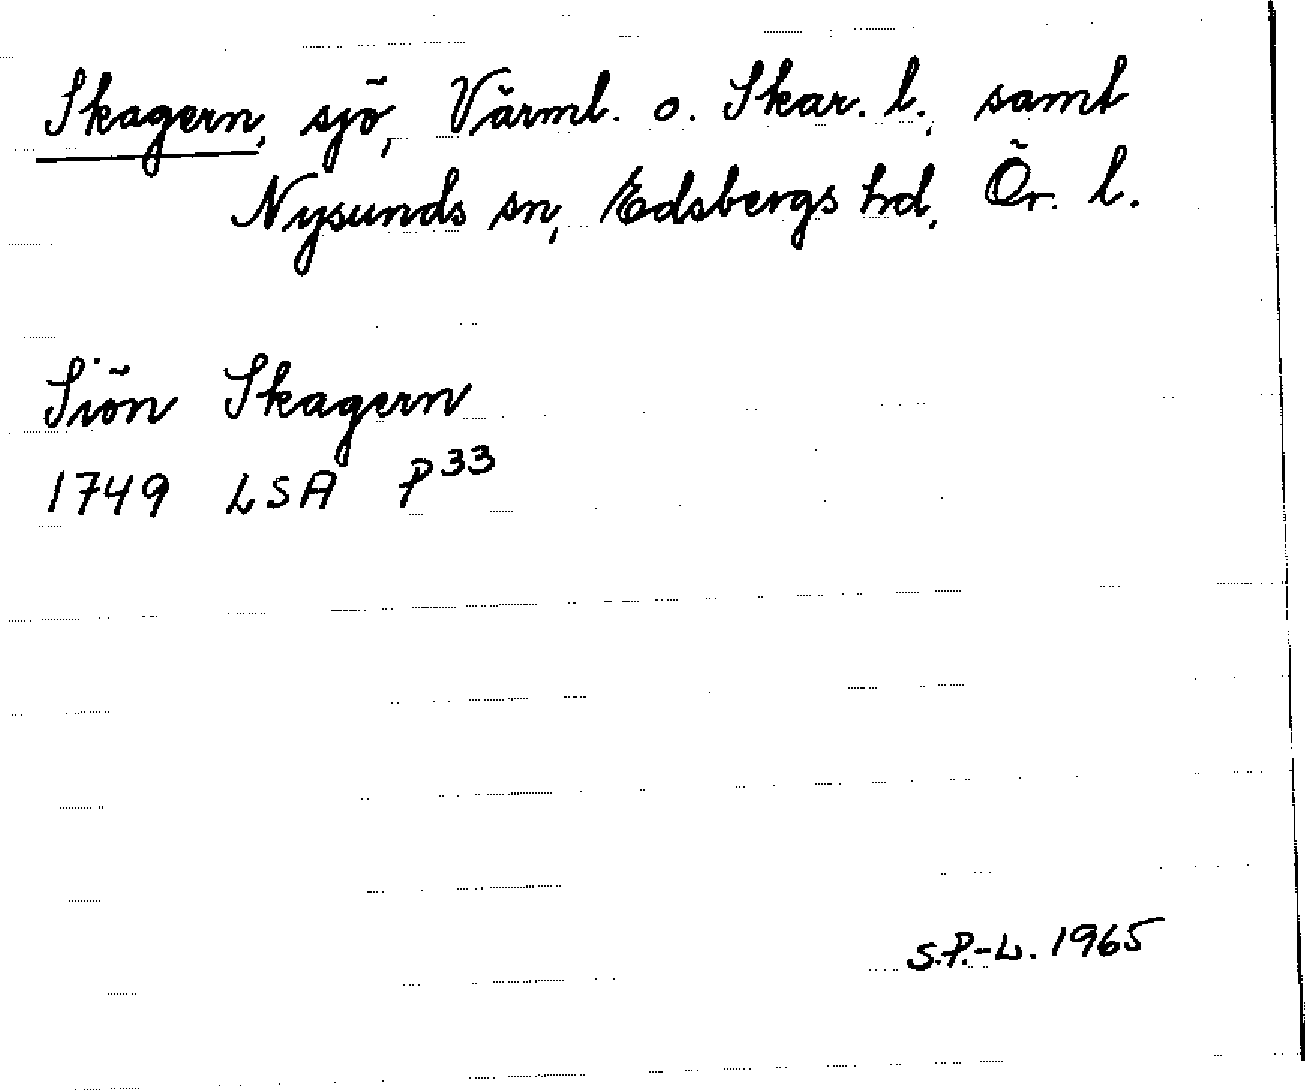 Skagern, sjö, Värml. o. Skar. l., samt
Nysunds sn, Edsbergs hd, Ör. l.
Siön Skagern
1749 LSA P33
S.P.-L. 1965